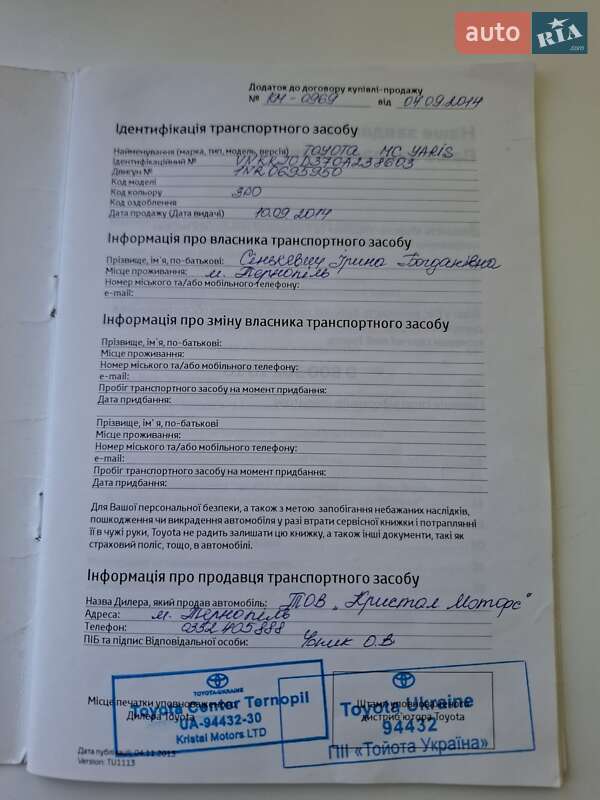 auto RIA.com
Додаток до договору купівлі-продажу
№ КМ-0969 від 04.09.2014
Ідентифікація транспортного засобу
Найменування (марка, тип, модель, версія) TOYOTA MC YARIS
Ідентифікаційний №
Двигун № 1NR0695950
Код моделі
Код кольору 3P0
Код оздоблення
Дата продажу (Дата видачі) 10.09.2014
Інформація про власника транспортного засобу
Прізвище, ім'я, по-батькові: Сенькевич Ірина Богданівна
Місце проживання: м. Тернопіль
Номер міського та/або мобільного телефону:
e-mail:
Інформація про зміну власника транспортного засобу
Прізвище, ім'я, по-батькові:
Місце проживання:
Номер міського та/або мобільного телефону:
e-mail:
Пробіг транспортного засобу на момент придбання:
Дата придбання:
Прізвище, ім'я, по-батькові
Місце проживання:
Номер міського та/або мобільного телефону:
e-mail:
Пробіг транспортного засобу на момент придбання:
Дата придбання:
Для Вашої персональної безпеки, а також з метою запобігання небажаних наслідків,
пошкодження чи викрадення автомобіля у разі втрати сервісної книжки і потраплянні
її в чужі руки, Toyota не радить залишати цю книжку, а також інші документи, такі як
страховий поліс, тощо, в автомобілі.
Інформація про продавця транспортного засобу
Назва Дилера, який продав автомобіль: ТОВ „Кристал Моторс"
Адреса: м. Тернопіль
Телефон: 0352 405 888
ПІБ та підпис Відповідальної особи: О.В
TOYOTA-UKRAINE
Місце печатки уповноваженого
Дилера Toyota
Toyota Center Ternopil
UA-94432-30
Kristal Motors LTD
Штамп уповноваженого
дистриб'ютора Toyota
Toyota Ukraine
94432
ПІІ «Тойота Україна»
Дата публікації: 04.11.2013
Version: TU1113